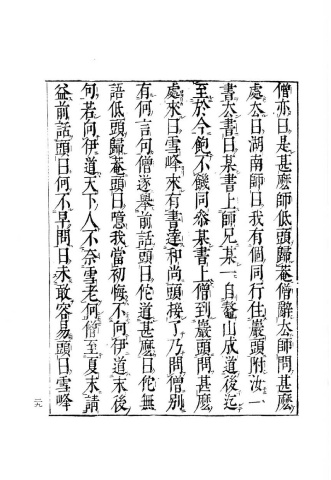 僧亦曰是甚麽師低頭歸菴僧辭去師問甚麽
處去曰湖南師曰我有個同行住巖頭附汝一
書去書曰某書上師兄某一自鼇山成道後迄
至於今飽不饑同參某書上僧到巖頭問甚麽
處來曰雪峰來有書達和尚頭接了乃問僧別
有何言句僧遂舉前話頭曰佗道甚麽曰佗無
語低頭歸菴頭曰噫我當初悔不向伊道末後
句若向伊道天下人不奈雪老何僧至夏末請
益前話頭曰何不早問曰未敢容易頭曰雪峰
二九